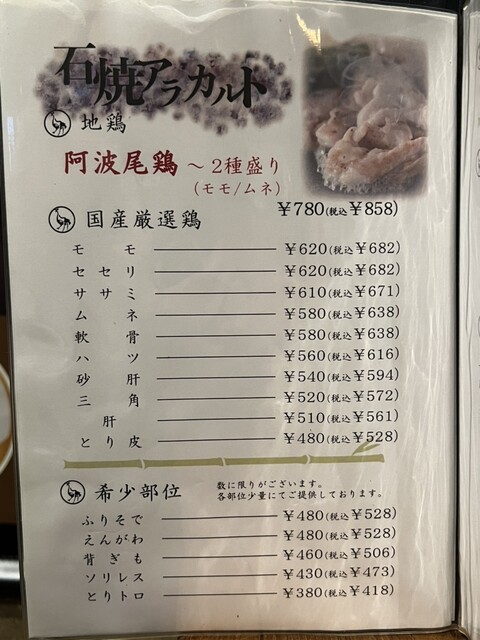 石焼アラカルト
地鶏
阿波尾鶏 ～2種盛り
(モモ/ムネ)
￥780(税込￥858)
国産厳選鶏
モモ ￥620(税込￥682)
セセリ ￥620(税込￥682)
ササミ ￥610(税込￥671)
ムネ ￥580(税込￥638)
軟骨 ￥580(税込￥638)
ハツ ￥560(税込￥616)
砂肝 ￥540(税込￥594)
三角 ￥520(税込￥572)
肝 ￥510(税込￥561)
とり皮 ￥480(税込￥528)
希少部位
数に限りがございます。
各部位少量にてご提供しております。
ふりそで ￥480(税込￥528)
えんがわ ￥480(税込￥528)
背ぎも ￥460(税込￥506)
ソリレス ￥430(税込￥473)
とりトロ ￥380(税込￥418)